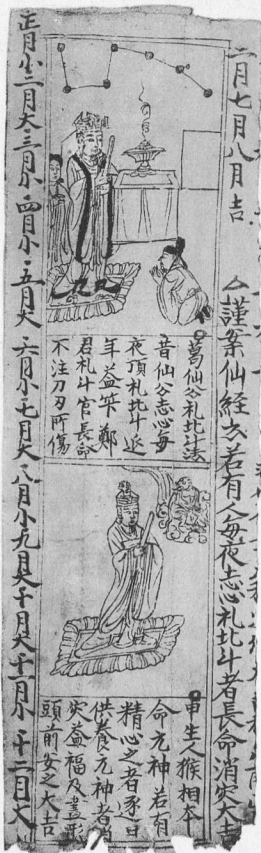 二月七月八月吉
謹案仙經云若有人每夜志心礼北斗者長命消灾大吉
葛仙公礼北斗法
昔仙公志心每
夜頂礼北斗延
年益筭鄭
君礼斗官長命
不注刀刃所傷
申生人猴相本
命元神若有
精心之者逐日
供養元神者消
灾益福及畫形
頭前安之大吉
正月小二月大三月小四月小五月大六月小七月大八月小九月大十月大十一月小十二月大